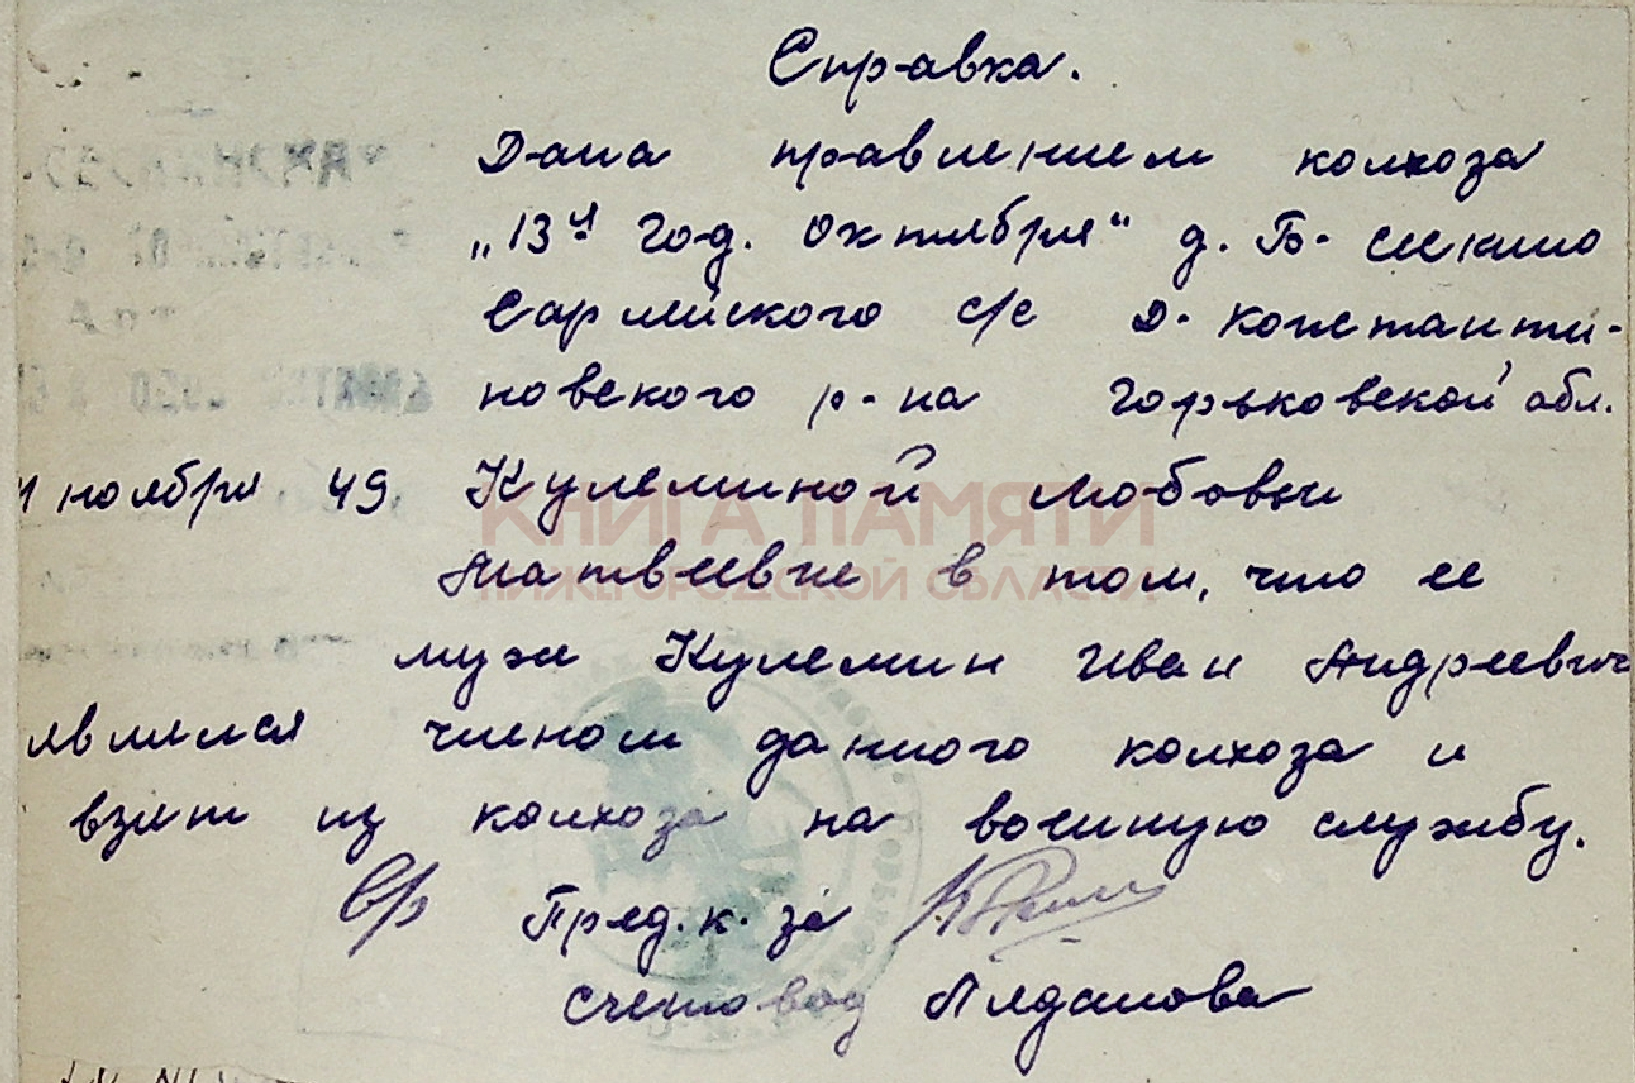 Справка.
Дана правлением колхоза
„13й год. Октября“ д. Б-Секино
Сарлейского с/с Д-Константи-
новского р-на Горьковской обл.
ноября 49 Кулеминой Любовьи
КНИГА ПАМЯТИ
НИЖЕГОРОДСКОЙ ОБЛАСТИ
Матвеевне в том, что ее
муж Кулемин Иван Андреевич
являлся членом данного колхоза и
взят из колхоза на военную службу.
в/р Пред. к-за
Счетовод